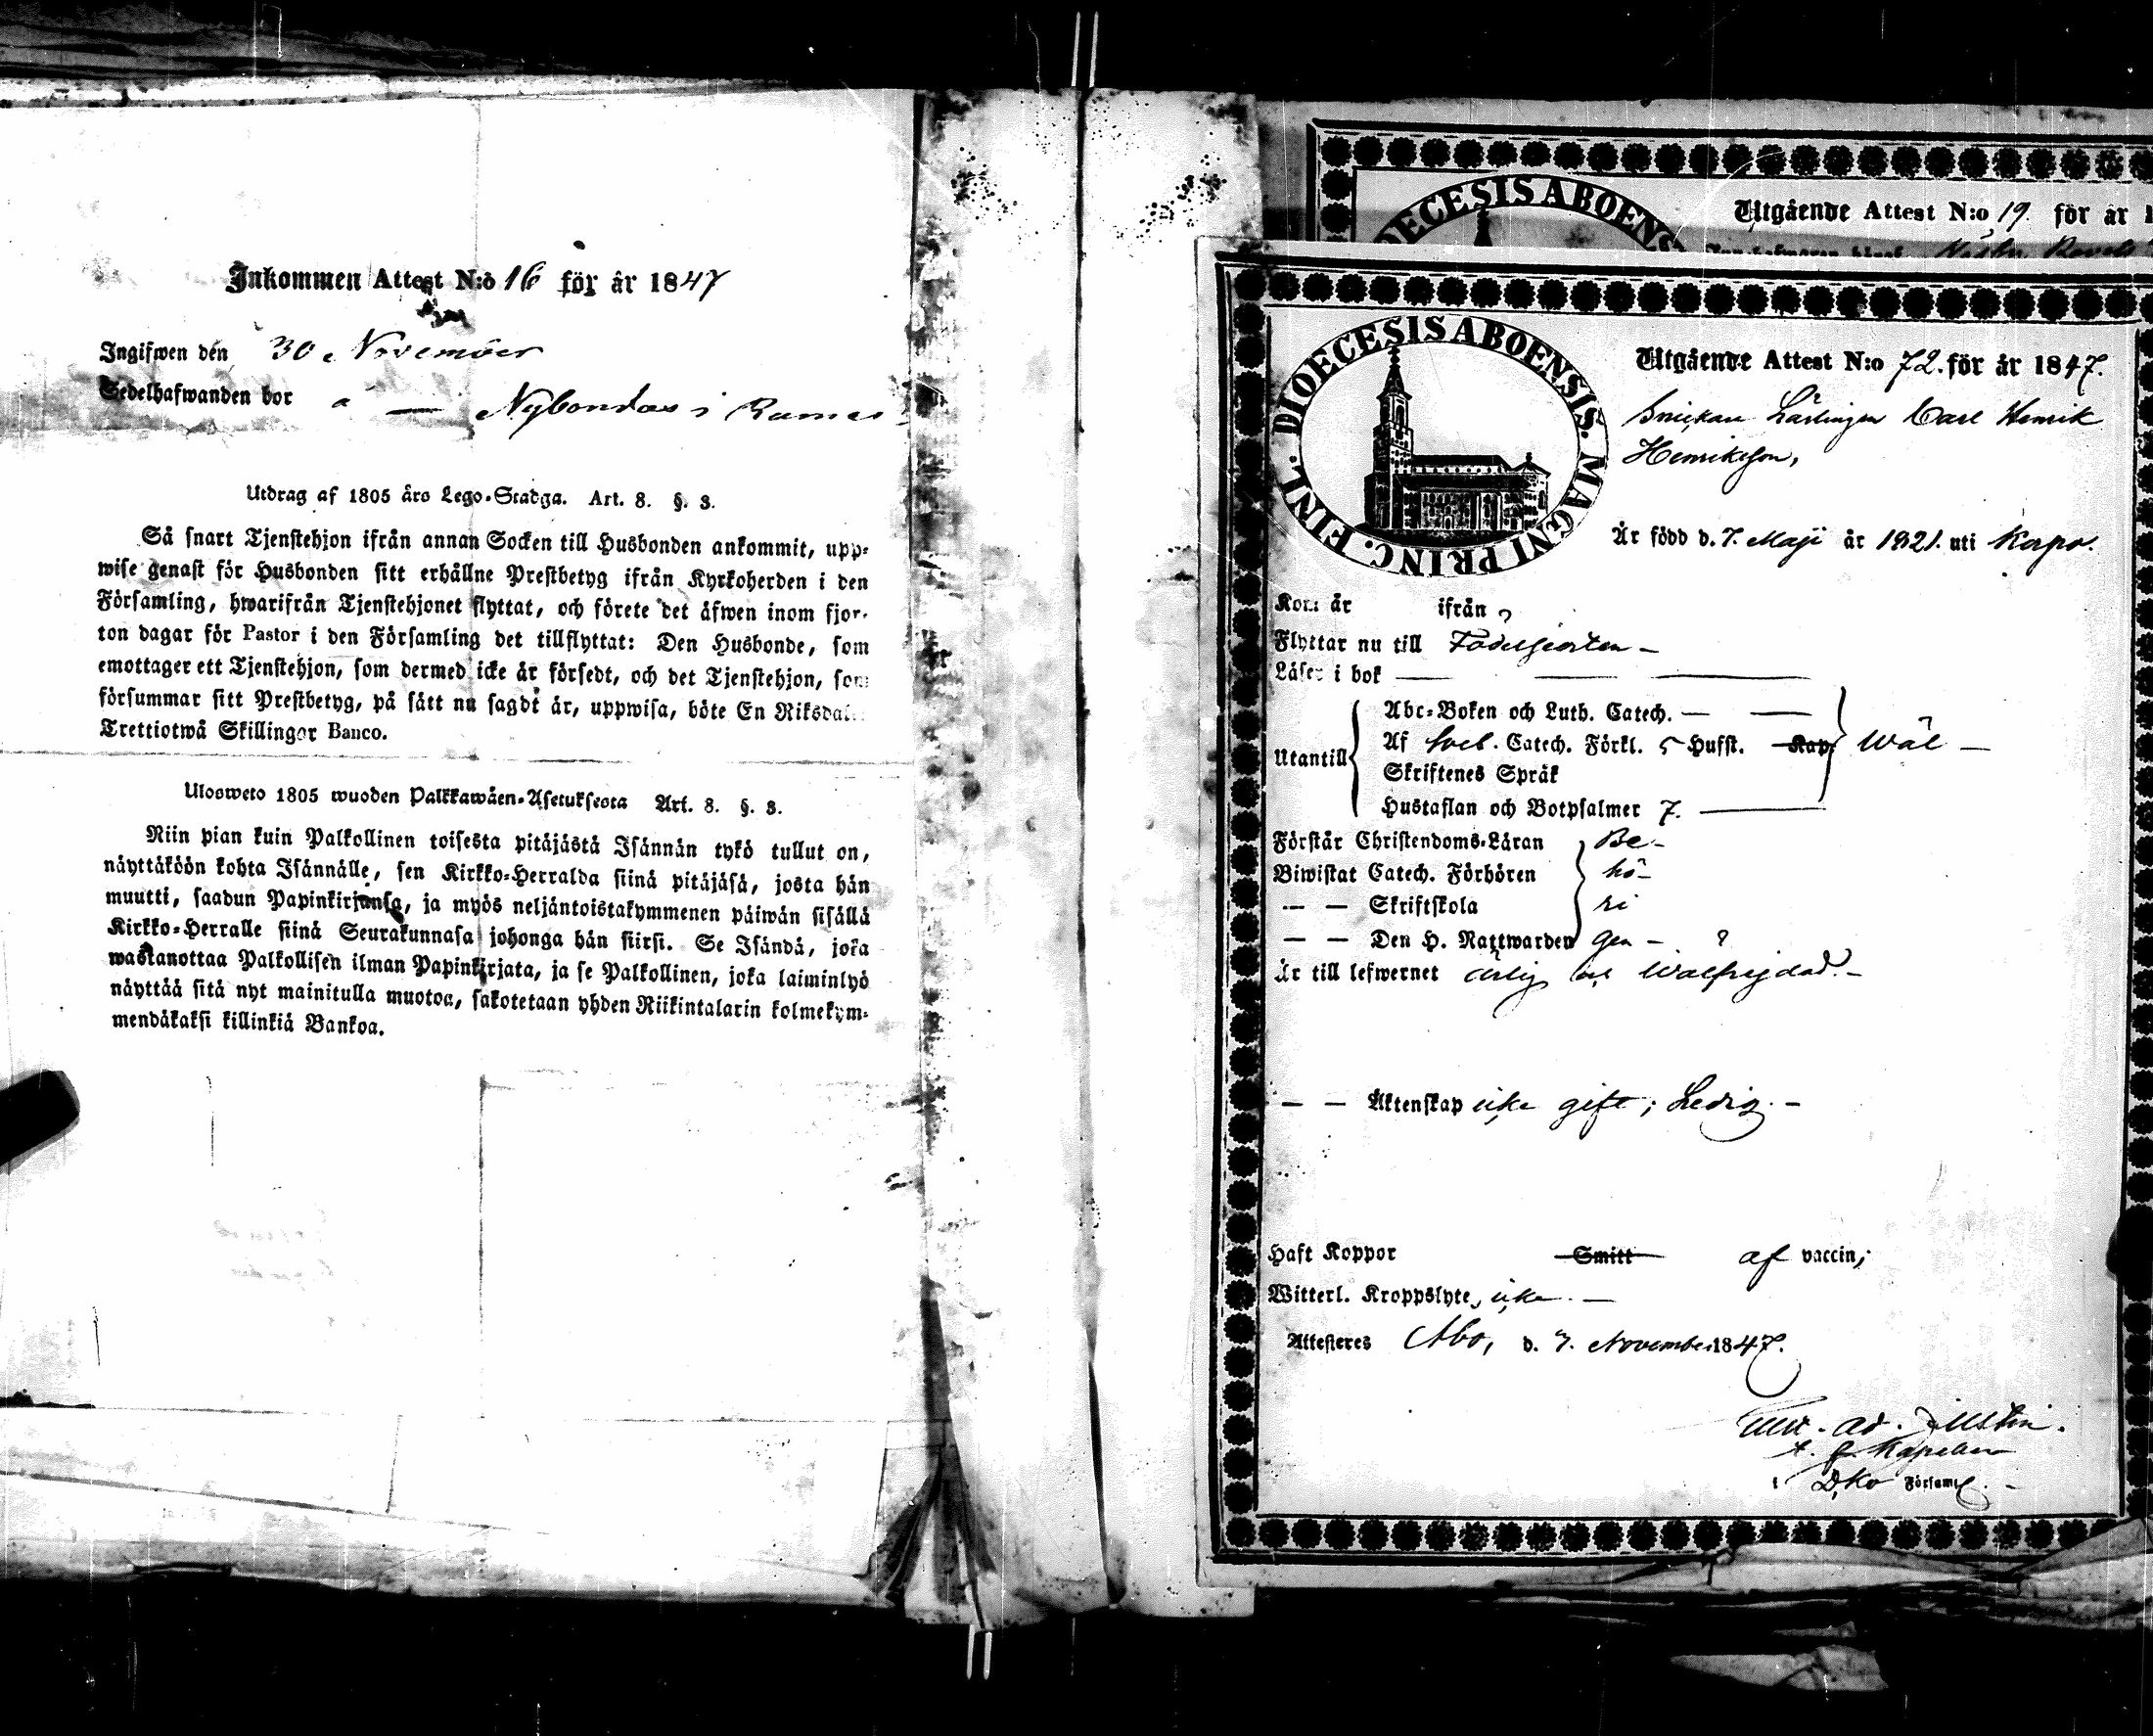 Inkommen Attest N:o 16 för år 1847
Ingifwen den 30 November
Sedelhafwanden bor å — Nybondas i Rumar
Utdrag af 1805 års Lego-Stadga. Art. 8. §. 3.
Så snart Tjenstehjon ifrån annan Socken till Husbonden ankommit, upp-
wise genast för Husbonden sitt erhållne Prestbetyg ifrån Kyrkoherden i den
Församling, hwarifrån Tjenstehjonet flyttat, och förete det äfwen inom fjor-
ton dagar för Pastor i den Församling det tillflyttat: Den Husbonde, som
emottager ett Tjenstehjon, som dermed icke är försedt, och det Tjenstehjon, som
försummar sitt Prestbetyg, på sätt nu sagdt är, uppwisa, böte En Riksdal.
Trettiotwå Skillingar Banco.
Ulosweto 1805 wuoden Palkkawäen-Asetuksesta Art. 8. §. 3.
Niin pian kuin Palkollinen toisesta pitäjästä Isännän tykö tullut on,
näyttäköön kohta Isännälle, sen Kirkko-Herralda siinä pitäjäsä, josta hän
muutti, saadun Papinkirjansa, ja myös neljäntoistakymmenen päiwän sisällä
Kirkko-Herralle siinä Seurakunnasa johonga hän siirsi. Se Isändä, joka
wastanottaa Palkollisen ilman Papinkirjata, ja se Palkollinen, joka laiminlyö
näyttää sitä nyt mainitulla muotoa, sakotetaan yhden Riikintalarin kolmekym-
mendäkaksi killinkiä Bankoa.
DIOECESIS ABOENS
Utgående Attest N:o 19 för år 1
DIOECESIS ABOENSIS. MAGNI PRINC. FINL.
Utgående Attest N:o 72. för år 1847.
Snickare Lärlingen Carl Henrik
Henriksson,
Är född d. 7. Maji år 1821. uti Korpo.
Kom år ifrån
Flyttar nu till Födelseorten —
Läser i bok — — —
Abc-Boken och Luth. Catech. — —
Utantill Af Sveb. Catech. Förkl. 5 Hufst. Kap. Wäl —
Skriftenes Språk
Hustaflan och Botpsalmer 7. —
Förstår Christendoms-Läran Be-
Biwistat Catech. Förhören hö-
— — Skriftskola ri
— — Den H. Nattwarden gen —
Är till lefwernet ärlig och Wälfrejdad. —
— — Äktenskap icke gift; Ledig. —
Haft Koppor Smitt af vaccin;
Witterl. Kroppslyte, icke. —
Attesteras Åbo, d. 7. November 1847.
Ad.
Kapellan
Församl.